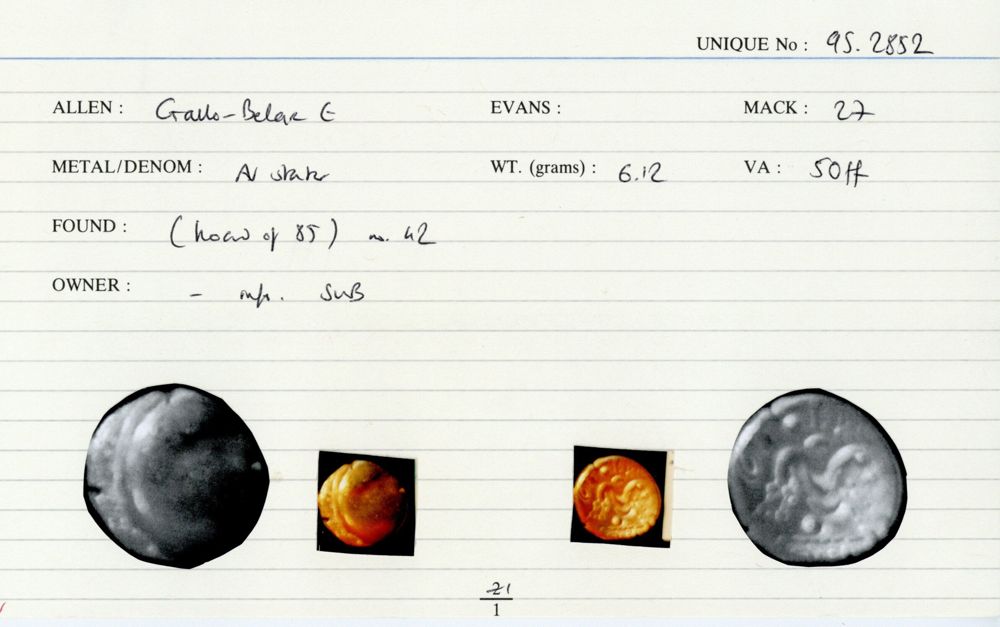 UNIQUE No : 95.2852
ALLEN : Gallo-Belgic E EVANS : MACK : 27
METAL/DENOM : AV stater WT. (grams) : 6.12 VA : 50ff
FOUND : (hoard of 85) no. 42
OWNER : - SWB
21
1